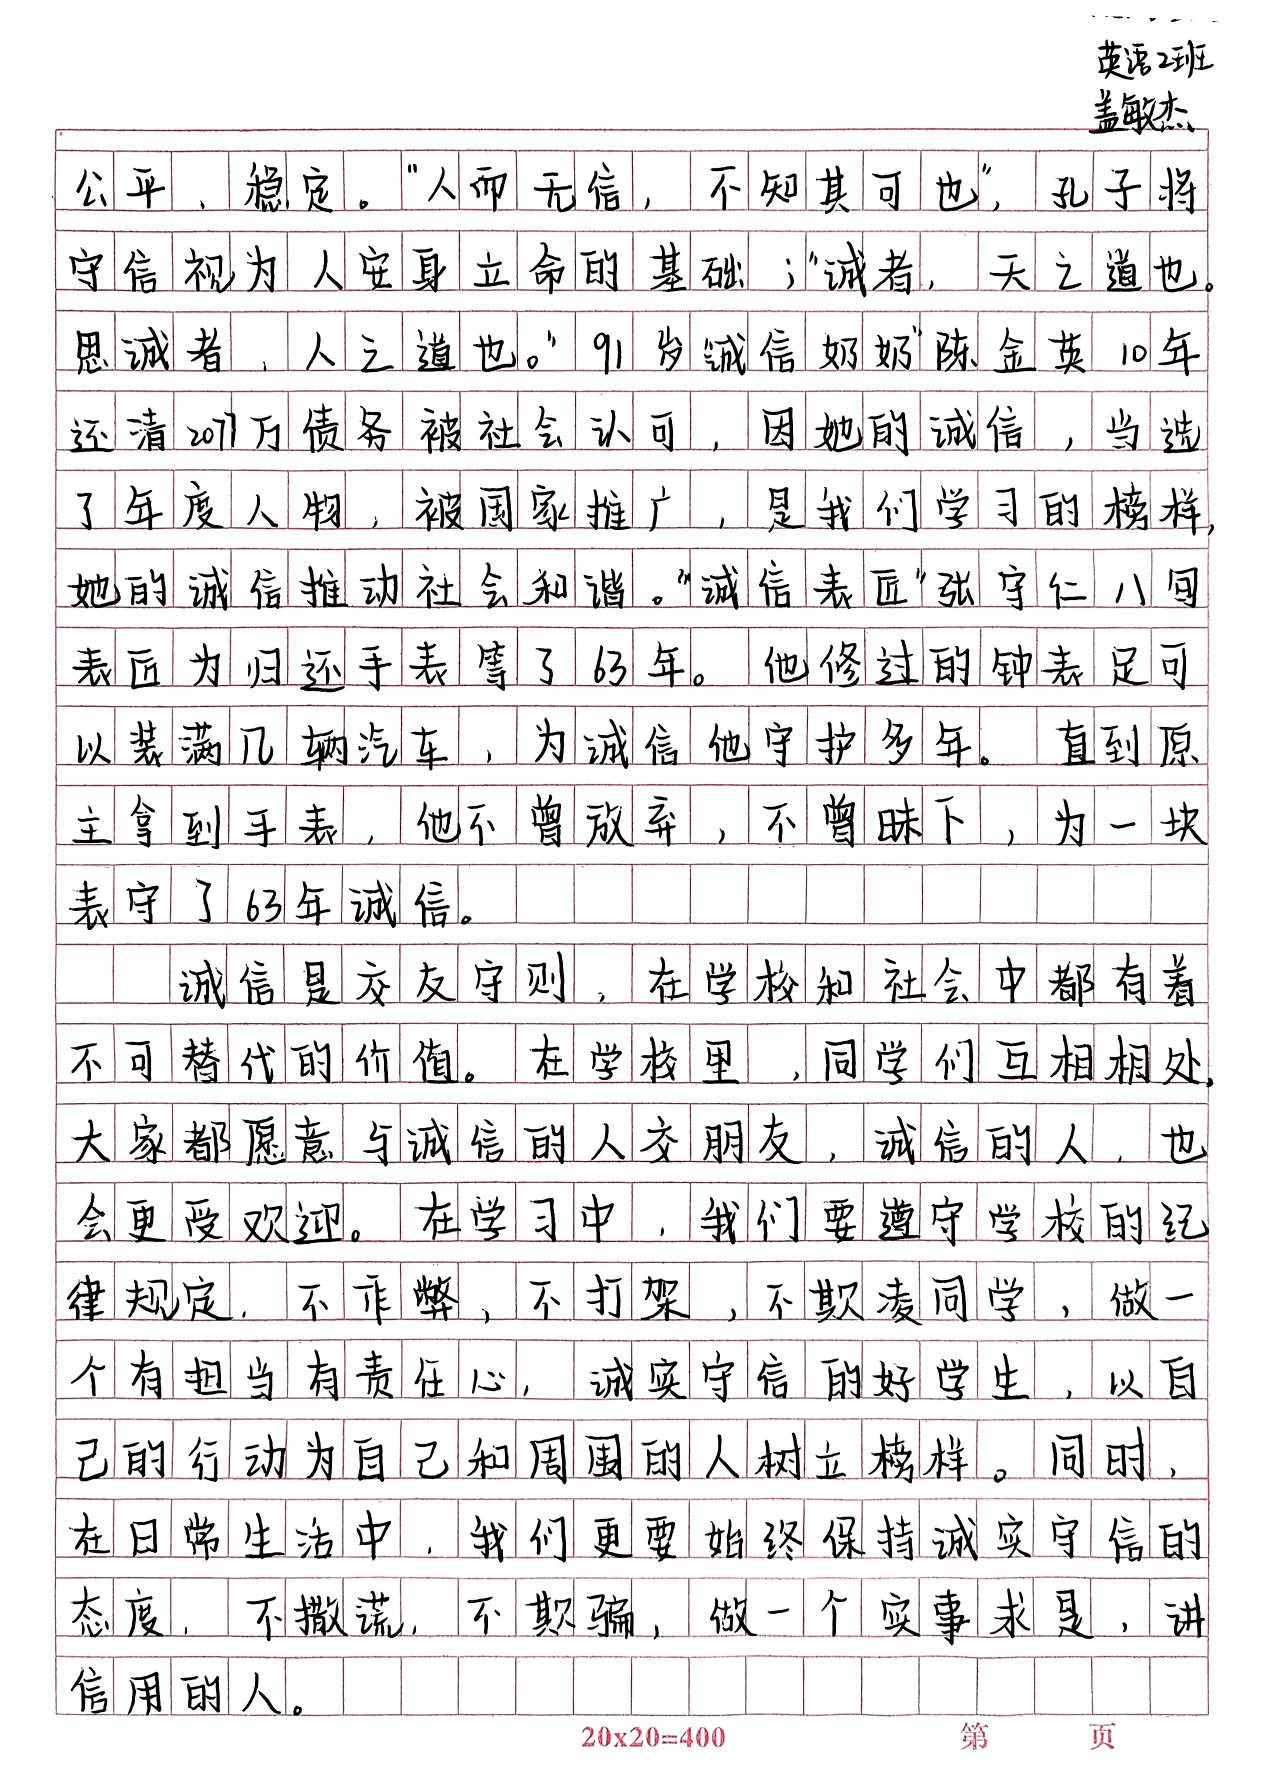 英语2班
盖敏杰
公平、稳定。“人而无信，不知其可也”，孔子将
守信视为人安身立命的基础；“诚者，天之道也。
思诚者，人之道也。”91岁“诚信奶奶”陈金英10年
还清2077万债务被社会认可，因她的诚信，当选
了年度人物，被国家推广，是我们学习的榜样，
她的诚信推动社会和谐。“诚信表匠”张守仁八旬
表匠为归还手表等了63年。他修过的钟表足可
以装满几辆汽车，为诚信他守护多年。直到原
主拿到手表，他不曾放弃，不曾昧下，为一块
表守了63年诚信。
诚信是交友守则，在学校和社会中都有着
不可替代的价值。在学校里，同学们互相相处，
大家都愿意与诚信的人交朋友，诚信的人，也
会更受欢迎。在学习中，我们要遵守学校的纪
律规定，不作弊，不打架，不欺凌同学，做一
个有担当有责任心，诚实守信的好学生，以自
己的行动为自己和周围的人树立榜样。同时，
在日常生活中，我们更要始终保持诚实守信的
态度，不撒谎，不欺骗，做一个实事求是，讲
信用的人。
20x20=400 第 页